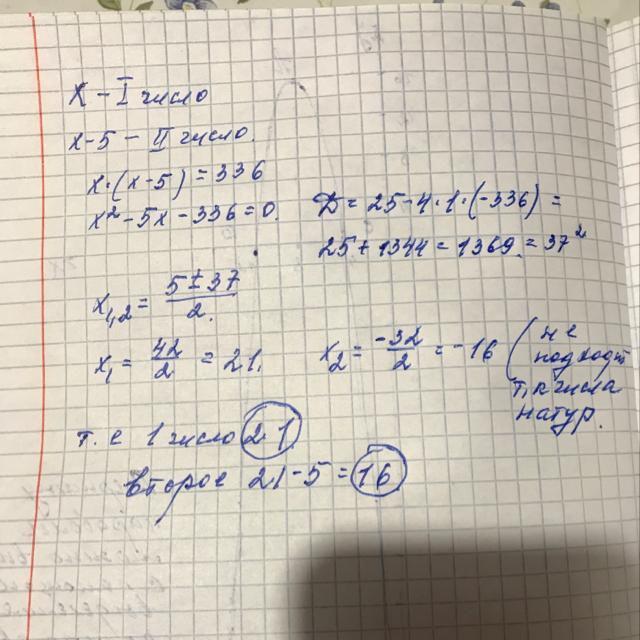 x – I число
x-5 – II число.
x·(x-5)=336
x²-5x-336=0.
D=25-4·1·(-336)=
25+1344=1369.=37²
x₁,₂= 5±37/2.
x₁= 42/2 =21.
x₂= -32/2 =-16 (не
подходит
т.к числа
натур.
т.е 1 число 21
второе 21-5=16